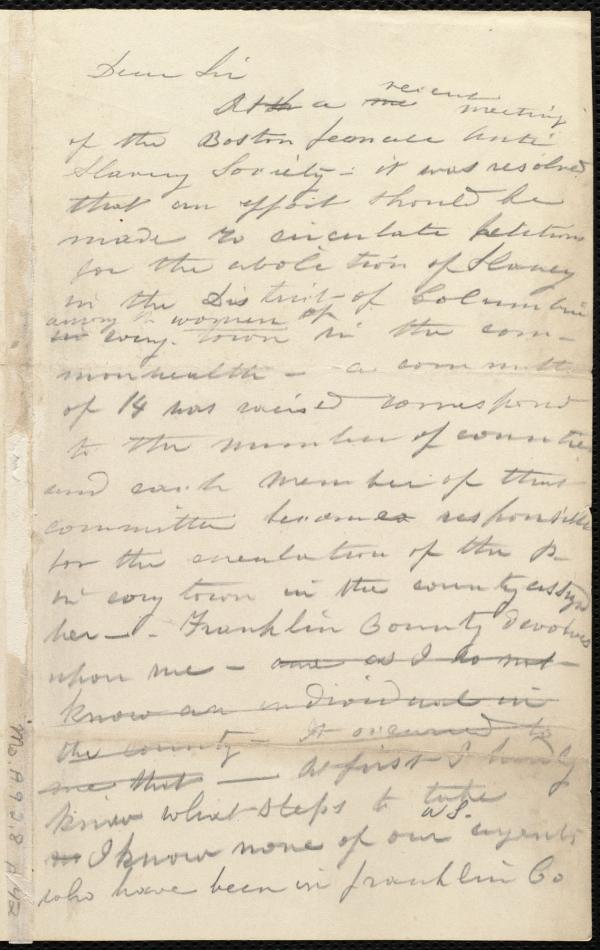 Dear Sir
At th a me recent meeting
of the Boston female Anti
Slavery Society - it was resolved
that an effort should be
made to circulate petitions
for the abolition of Slavery
in the District of Columbia
among the women of
in every town in the com-
monwealth - a committ
of 14 was raised correspond
to the number of counties
and each member of this
committee becomes responsible
for the circulation of the P-
in evry town in the county assignd
her - - Franklin County devolves
upon me - and as I do not
know an individual in
the county - It occurred to
me that - At first I hardly
knew what steps to take
as I know none of our agents
who have been in franklin Co
Ms. A.9.2.8 p.42